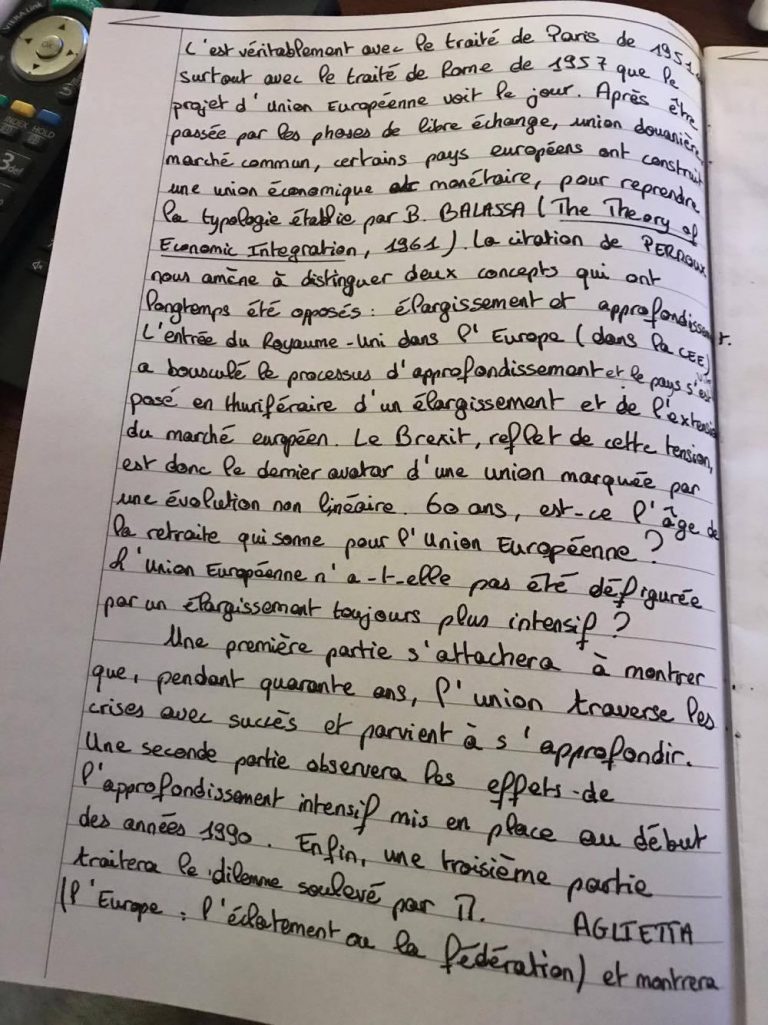 C'est véritablement avec le traité de Paris de 1951,
surtout avec le traité de Rome de 1957 que le
projet d'union Européenne voit le jour. Après être
passée par les phases de libre échange, union douanière,
marché commun, certains pays européens ont construit
une union économique et monétaire, pour reprendre
la typologie établie par B. BALASSA (The Theory of
Economic Integration, 1961). La citation de PERROUX
nous amène à distinguer deux concepts qui ont
longtemps été opposés : élargissement et approfondissement.
L'entrée du Royaume-Uni dans l'Europe (dans la CEE)
a bousculé le processus d'approfondissement et le pays s'est
posé en thuriféraire d'un élargissement et de l'extension
du marché européen. Le Brexit, reflet de cette tension,
est donc le dernier avatar d'une union marquée par
une évolution non linéaire. 60 ans, est-ce l'âge de
la retraite qui sonne pour l'Union Européenne ?
L'Union Européenne n'a-t-elle pas été défigurée
par un élargissement toujours plus intensif ?
Une première partie s'attachera à montrer
que, pendant quarante ans, l'union traverse les
crises avec succès et parvient à s'approfondir.
Une seconde partie observera les effets de
l'approfondissement intensif mis en place au début
des années 1990. Enfin, une troisième partie
traitera le dilemne soulevé par M. AGLIETTA
(l'Europe : l'éclatement ou la fédération) et montrera
VIERA Link
OK
INDEX HOLD
3 def